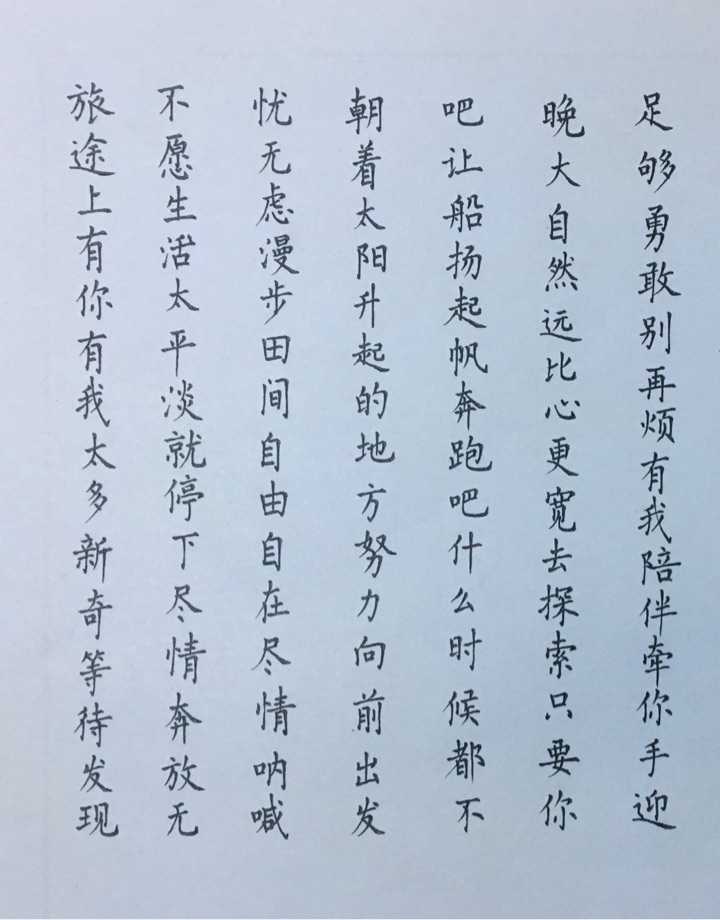 旅途上有你有我太多新奇等待发现
不愿生活太平淡就停下尽情奔放无
忧无虑漫步田间自由自在尽情呐喊
朝着太阳升起的地方努力向前出发
吧让船扬起帆奔跑吧什么时候都不
晚大自然远比心更宽去探索只要你
足够勇敢别再烦有我陪伴牵你手迎